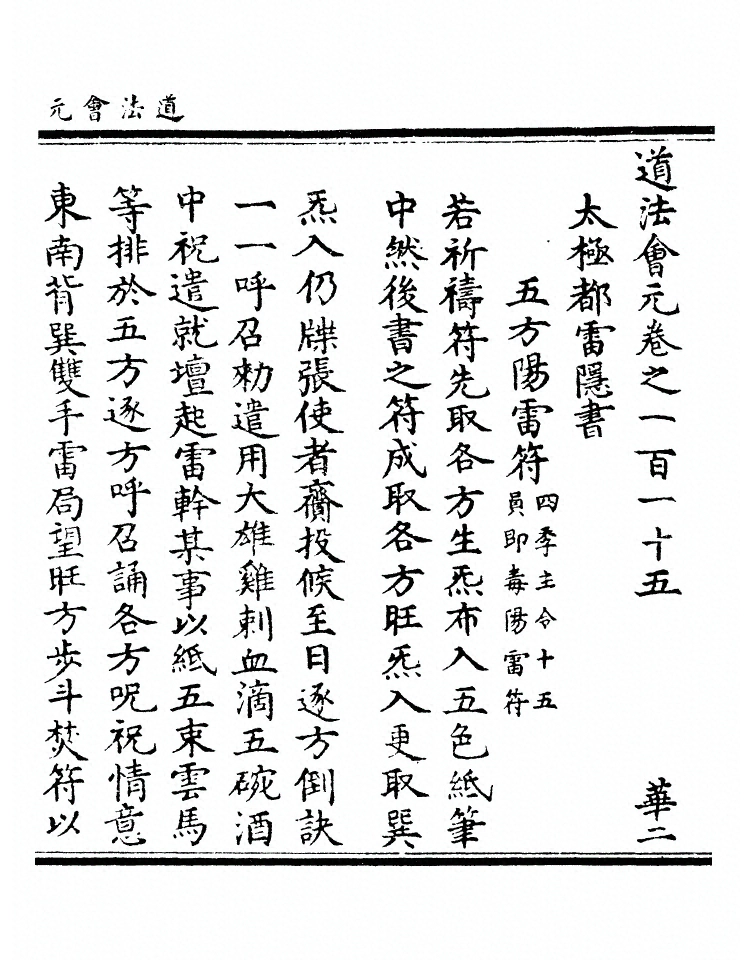 道法會元
道法會元卷之一百一十五
華二
太極都雷隱書
五方陽雷符四季主令十五
員即毒陽雷符
若祈禱符先取各方生炁布入五色紙筆
中然後書之符成取各方旺炁入更取巽
炁入仍牒張使者賫投候至日逐方倒訣
一一呼召勑遣用大雄雞刺血滴五碗酒
中祝遣就壇起雷幹某事以紙五束雲馬
等排於五方逐方呼召誦各方呪祝情意
東南背巽雙手雷局望旺方步斗焚符以